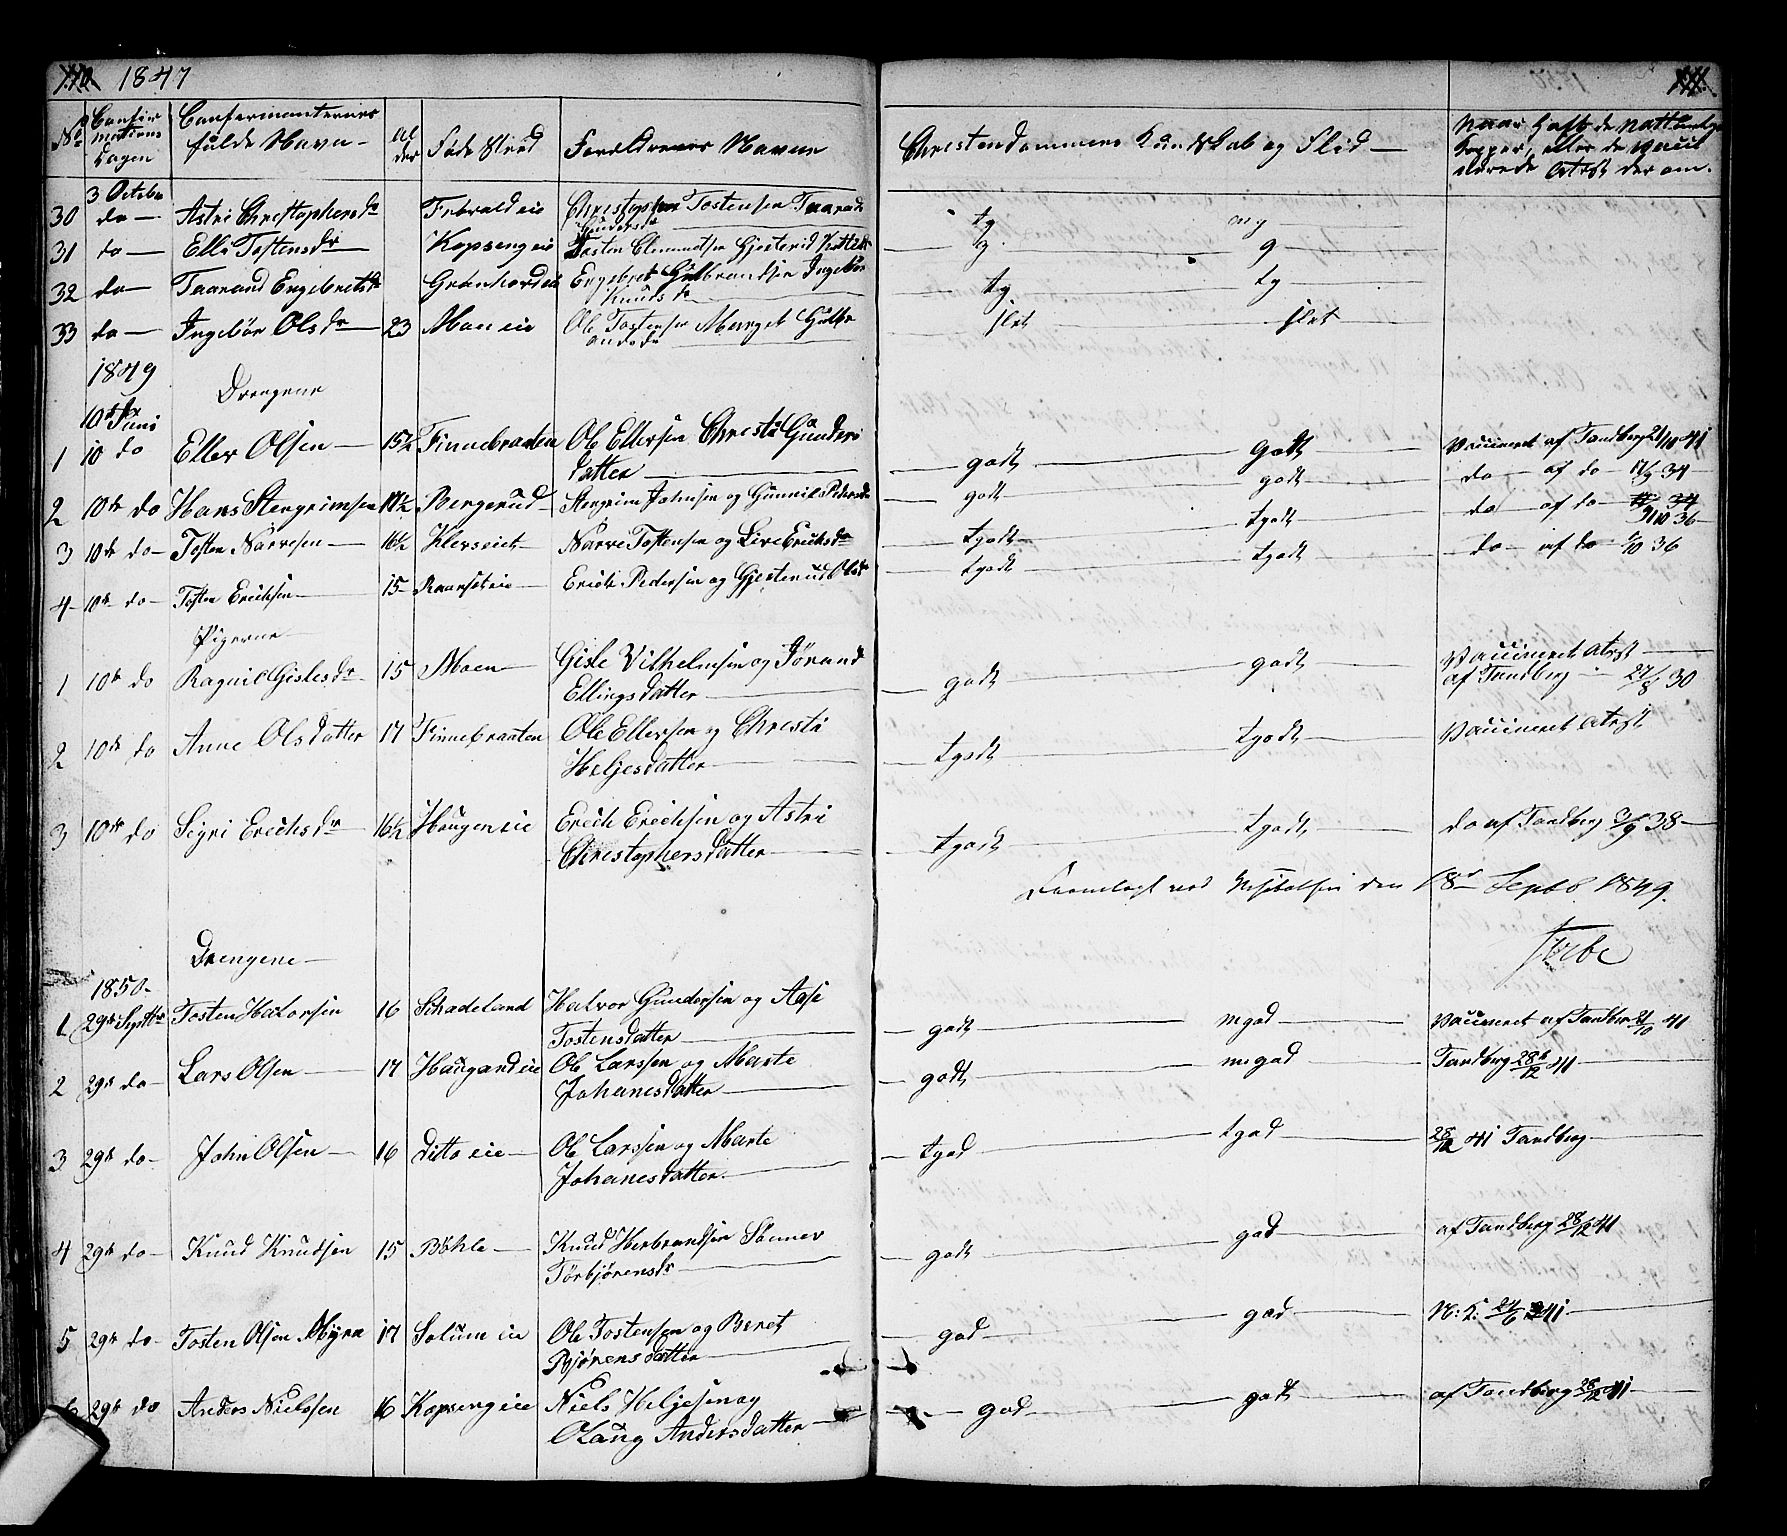 1847
No Confirmations Dagen Confirmanternes fulde Navn Alder Føde Sted Forældrenes Navne Christendommens Kundskab og Flid Naar Havt de Natturlige Kopper, eller de Vaccinerede Atest der om.
3 October
30 do Astri Christophersdr Christopher Tostensen Taarand Gundersdr tg mg
31 do Elli Tostensdr Kopseng eie Tosten Clemmetsen g
32 do Taarand Engebretsdr Engebret Gulbrandsen Ingebör Knudsdr tg tg
33 do Ingebör Olsdr 23 Moen eie Ole Tostensen Marget Gulbrandsdr slet slet
1849
Drengene
10de Juni
1 10 do Eller Olsen 15½ Finnebraaten Ole Ellersen Christi Gundersdatter godt godt Vaccineret af Tandberg 21/10 41
2 10de do Hans Stengrimsen 17½ Bergerud Stengrim Johnsen og Gunnil Pedersdr godt godt do af do 17/9 34
3 10de do Tosten Narvesen 16½ Klevseiet Narve Tostensen og Live Eriksdr tgodt tgodt do af do 9/10 36
4 10de do Tosten Erichsen 15 Erich Pedersen og Gjesterud Olsdr tgodt tgodt do af do 9/10 36
Pigerne
1 10de do Ragnil Gislesdr 15 Moen Gisle Vilhelmsen og Jörand Ellingsdatter godt godt Vaccineret Atest af Tandberg 27/8 30
2 10de do Anne Olsdatter 17 Finnebraaten Ole Ellersen og Christi Heljesdatter tgodt tgodt Vaccineret Atest
3 10de do Sigri Erichsdr 16½ Haugen eie Erich Erichsen og Astri Christophersdatter tgodt tgodt do af Tandberg 3/9 38
Fremlagt ved Visitatsen den 18de Septb. 1849.
Drengene
1850
1 29de Septbr Tosten Halvorsen 16 Schadeland Halvor Gundersen og Aase Tostensdatter godt mgod Vaccineret af Tandberg 21/10 41
2 29de do Lars Olsen 17 Haugand eie Ole Larssen og Marte Johanesdatter godt megod Tandberg 28de/12 41
3 29de do John Olsen 16 Ditto eie Ole Larssen og Marte Johanesdatter tgod tgod 28/12 41 Tandberg
4 29de do Knud Knudsen 15 Böhle Knud Herbrandsen Sönnev Törbjörensdr godt god af Tandberg 28/12 41
5 29de do Tosten Olsen Myra 17 Solum eie Ole Tostensen og Beret Bjørensdatter god god 24/6 41
6 29de do Anders Nielssen 16 Kopseng eie Niels Heljesen og Olaug Andersdatter god godt af Tandberg 28/12 41